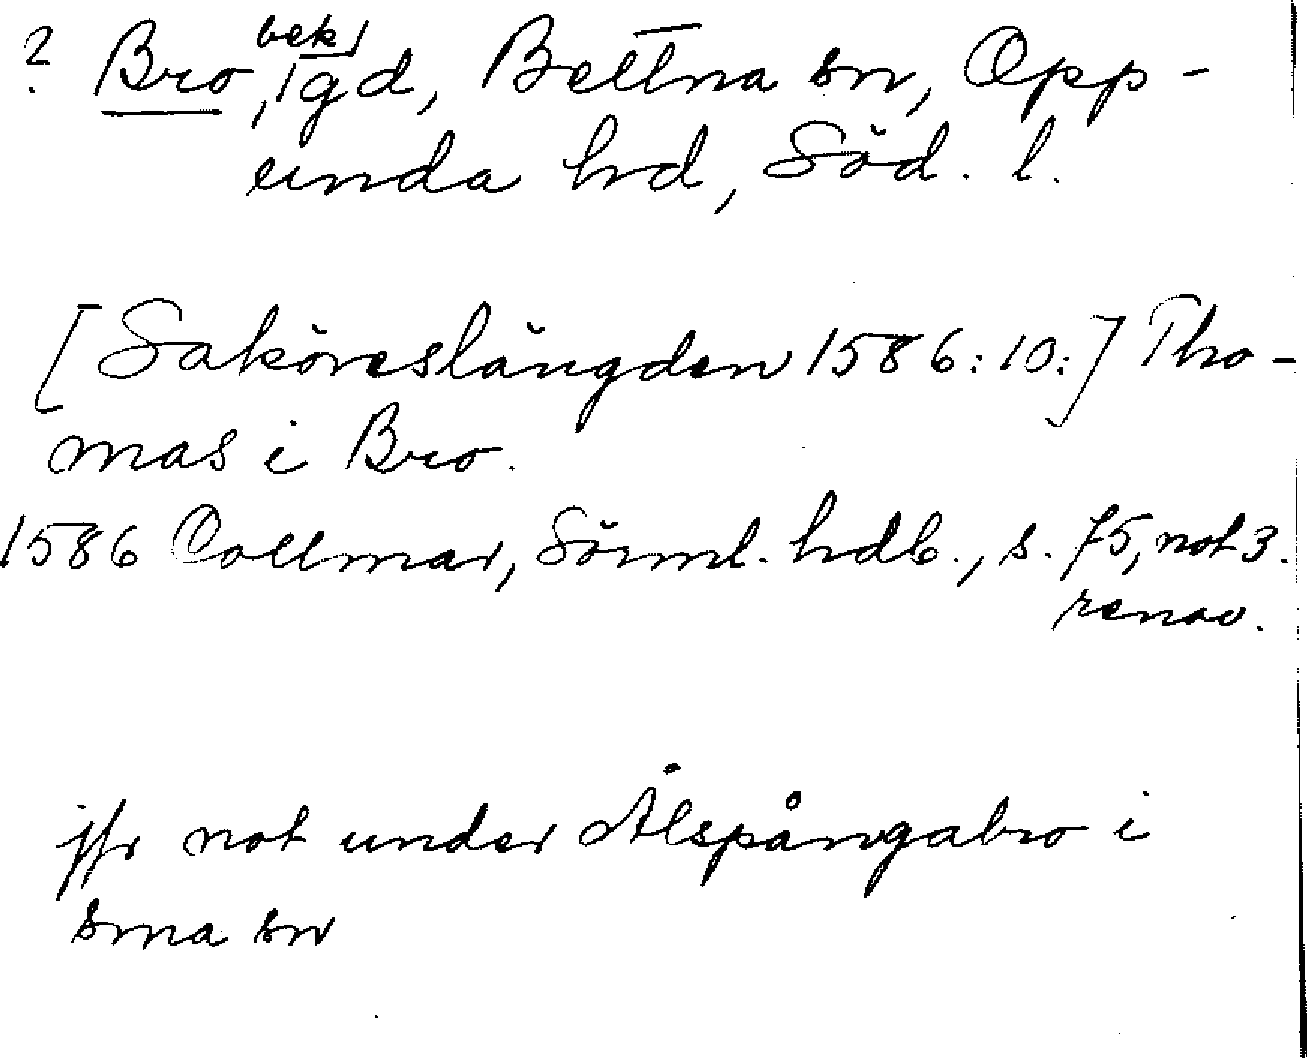 ? Bro, bek gd, Bettna sn, Opp-
unda hd, Söd. l.
[Saköreslängden 1586:10:] Tho-
mas i Bro.
1586 Collmar, Sörml. hdb., s. 75, not 3.
renov.
jfr not under Ålspångabro i
sma sn